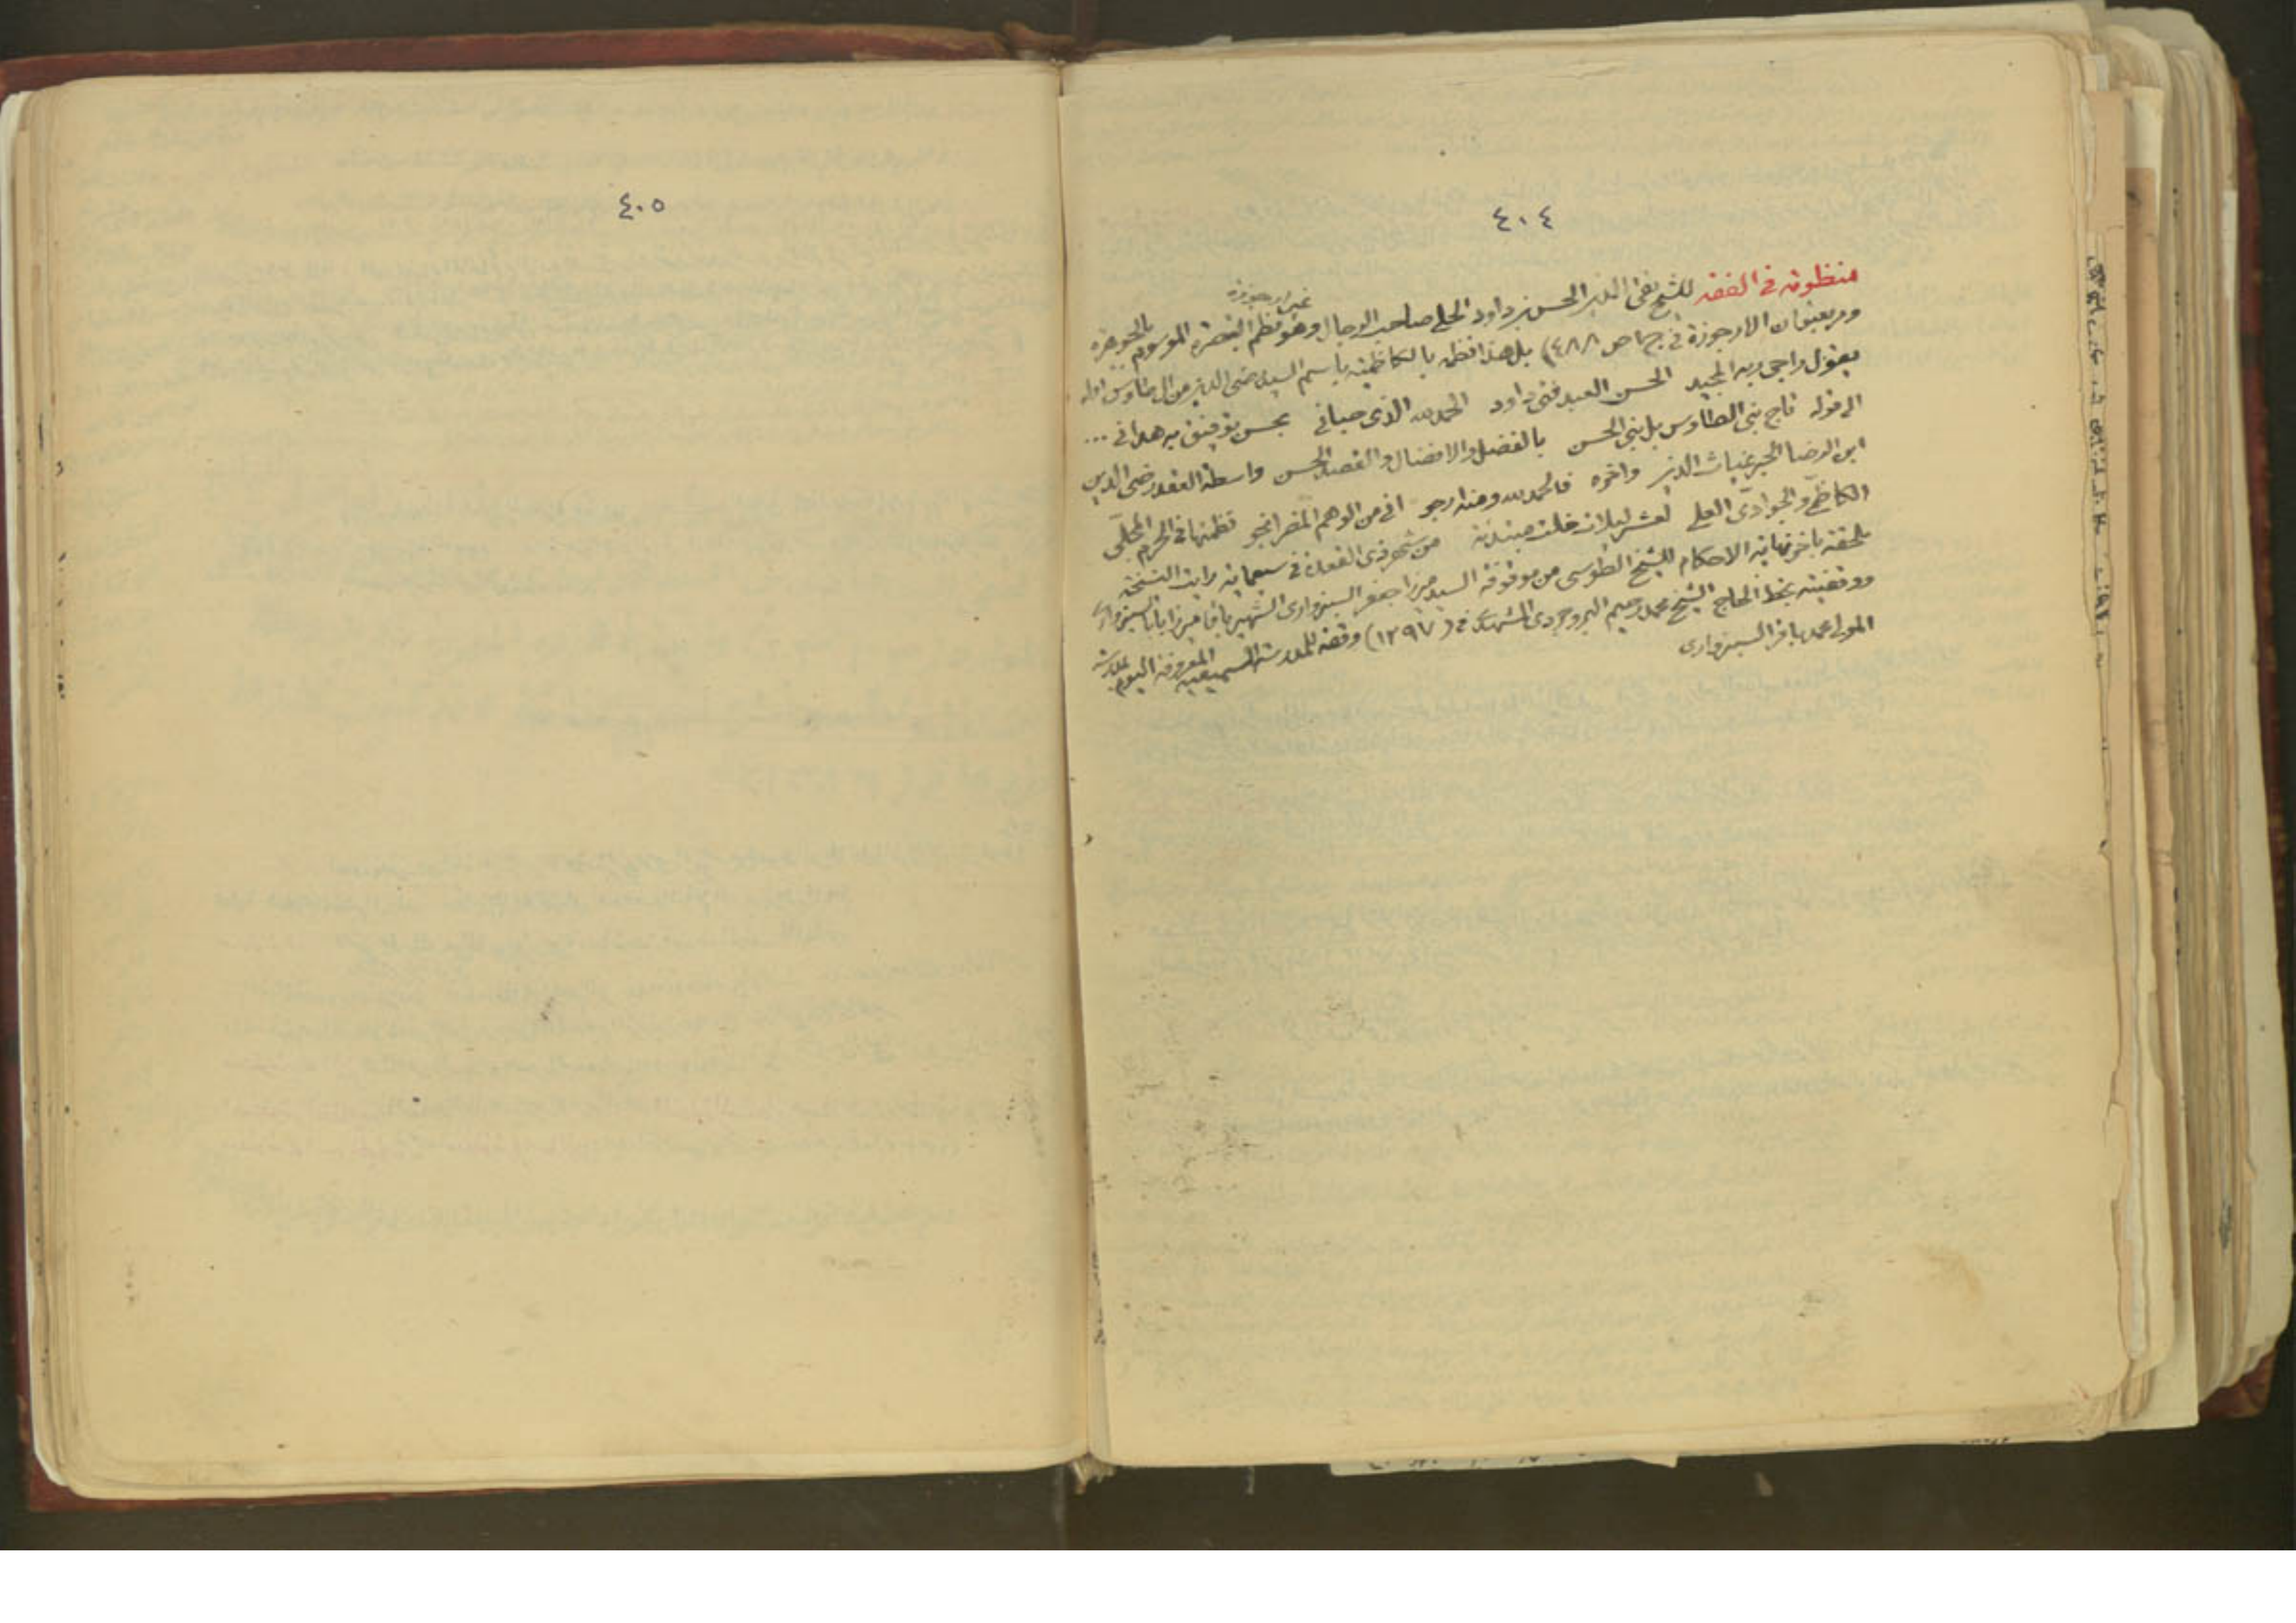 ٤٠٤
منظومة في الفقه للشيخ تقي الدين الحسن بن داود الحلي صاحب الرجال وهو نظم التبصرة الموسوم بالجوهرة
غير ارجوزة
ومر بعنوان الارجوزة في ج١ ص ٤٨٨) بل هذا نظمه بالكاظمية باسم السيد رضي الدين من ال طاوس اوله
يقول راجي ربه المجيد الحسن العبد فتى داود الحمد لله الذي حباني بحسن توفيق به هداني ...
الى قوله تاج بني الطاوس بل بني الحسن بالفضل والافضال والقصد الحسن واسطة العقد رضي الدين
ابن الرضا الحبر غياث الدين واخره فالحمد لله ومنه ارجو اني من الوهم المضر انجو نظمتها في الحرم المحلّى
الكاظميّ والجواديّ العلي لعشر ليلات خلت مبينة من شهر ذي القعدة في سبعمائة رايت النسخة
ملحقة باخر نهاية الاحكام للشيخ الطوسي من موقوفة السيد ميرزا جعفر السبزواري الشهير باقا ميرزا بابا السبزواري
ووقفيته بخط الحاج الشيخ محمد رحيم البروجردي المشهدي في (١٢٩٧) وقفه للمدرسة السميعية المعروفة اليوم بمدرسة
المولى محمد باقر السبزواري
٤٠٥